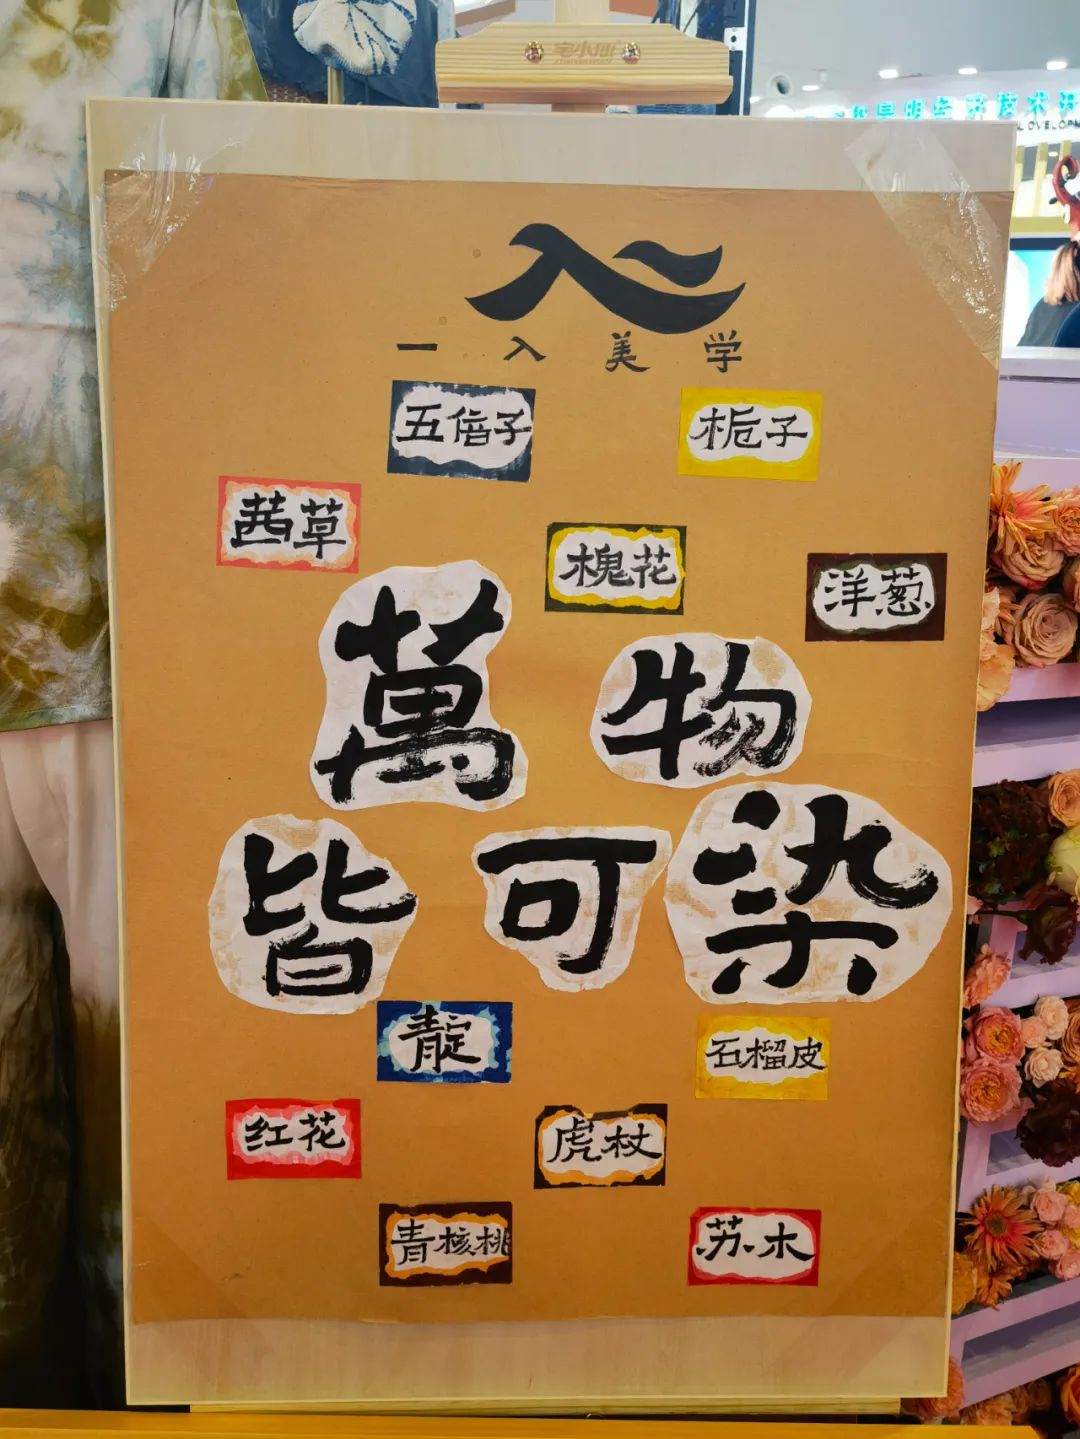 宅小仙
一入美学
五倍子
栀子
茜草
槐花
洋葱
萬物
皆可染
青靛
石榴皮
红花
虎杖
青核桃
苏木